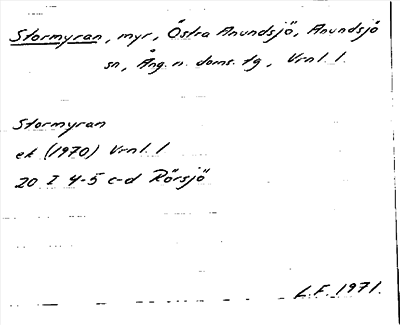 Stormyran, myr, Östra Anundsjö, Anundsjö
sn, Ång. n. doms. tg, Vrnl. 1.
Stormyran
ek (1970) Vrnl. 1
20 I 4-5 c-d Rörsjö
L.F. 1971.